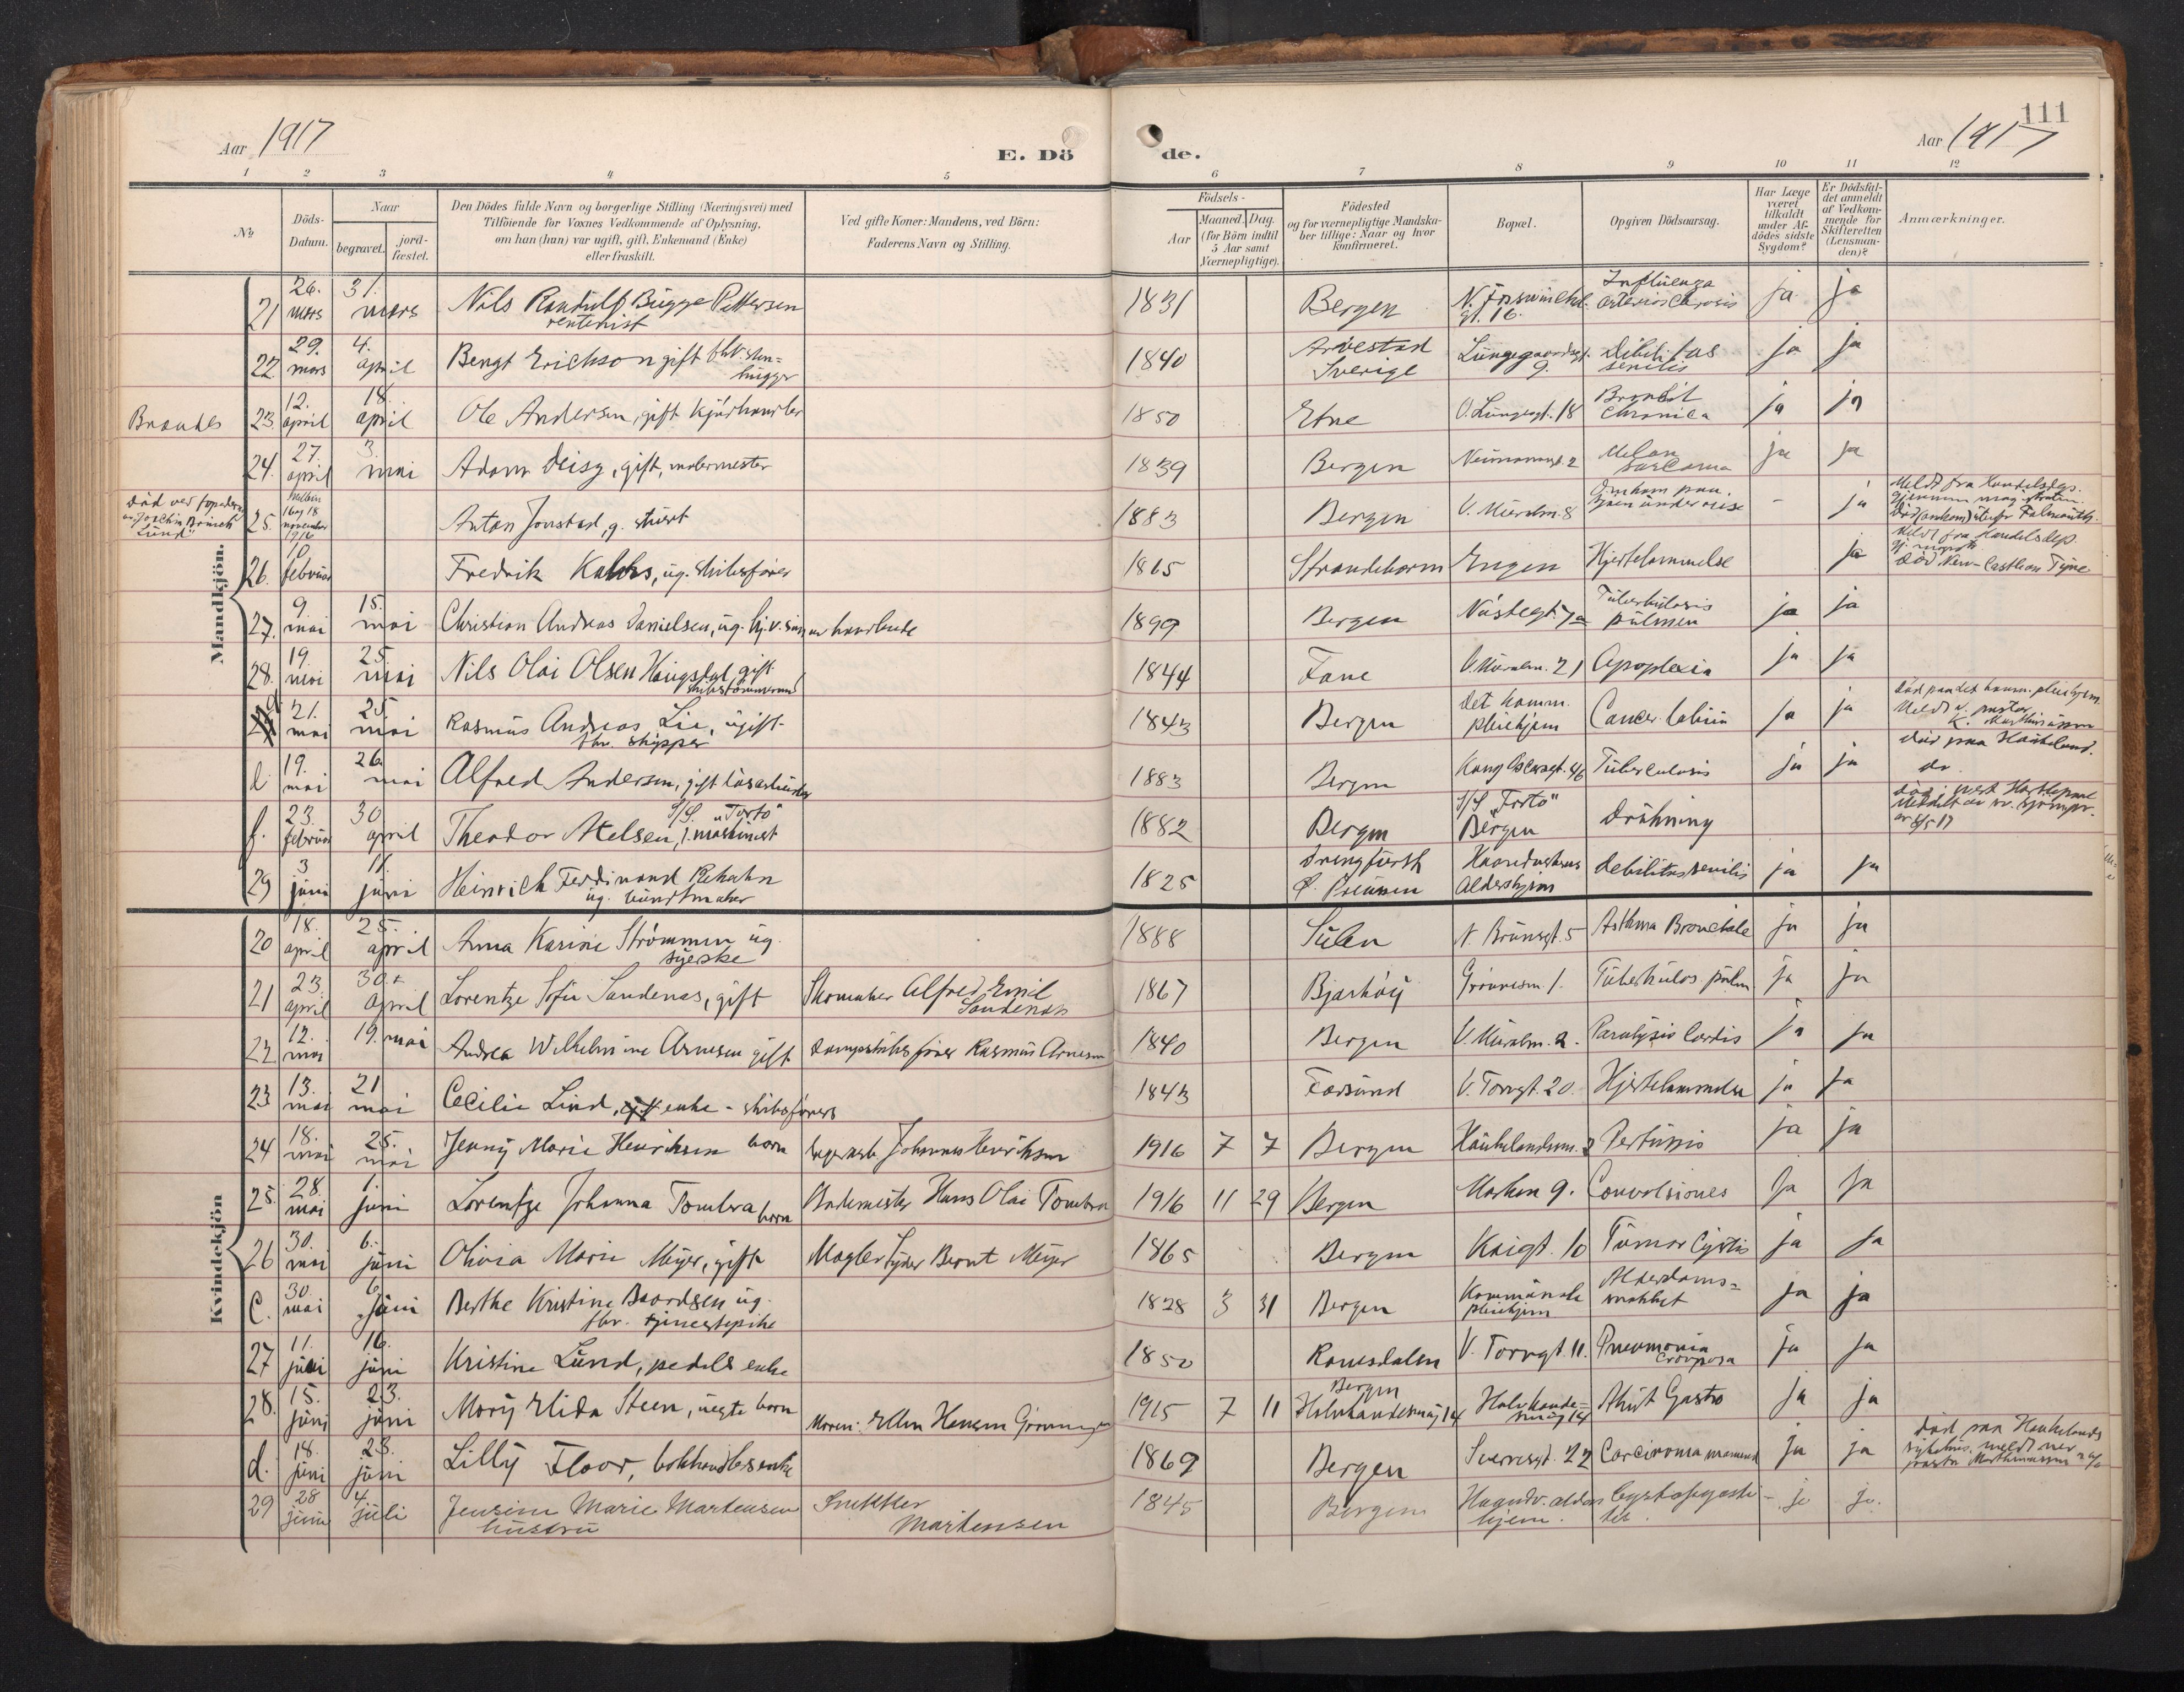 111
Aar 1917
E. Dö de.
Aar 1917
1 2 3 4 5 6 7 8 9 10 11 12
№
Döds-Datum.
Naar
begravet.
jord-fæstet.
Den Dödes fulde Navn og borgerlige Stilling (Næringsvei) med
Tilföiende for Voxnes Vedkommende af Oplysning,
om han (hun) var ugift, gift, Enkemand (Enke)
eller fraskilt.
Ved gifte Koner: Mandens, ved Börn:
Faderens Navn og Stilling.
Födsels-
Aar
Maaned. Dag.
(for Börn indtil
5 Aar samt
Værnepligtige).
Födested
og for værnepligtige Mandska-
ber tillige: Naar og hvor
konfirmeret.
Bopæl.
Opgiven Dödsaarsag.
Har Læge
været
tilkaldt
under Af-
dödes sidste
Sygdom?
Er Dödsfal-
det anmeldt
af Vedkom-
mende for
Skifteretten
(Lensman-
den)?
Anmærkninger.
Mandkjön.
21 26. mars 31. mars Nils Randulf Bugge Pettersen rentenist 1831 Bergen gt. 16. Influenza ja ja
22. 29. mars 4. april Bengt Erichson gift fhv. sten=hugger 1840 Sverige Lungegaardsgt. 9. senilis ja ja
23 12. april 18. april Ole Andersen, gift kjørhandler 1850 Etne O. Lungegt. 18 chronica ja ja
24. 27. april 3. mai Adam Deisz, gift, malermester 1839 Bergen Neumannsgt. 2 Melan sarcoma ja ja
25. november 1916 Anton Jonstad, g. stuert 1883 Bergen V. Muralm. 8 - ja
26. 10. februar Fredrik, ug. skibsfører 1865 Strandebarm Engen Hjertelammelse ja
27. 9. mai 15. mai Christian Andreas Danielsen, ug. 1899 Bergen Nøstegt. Tuberkulosis pulmon ja ja
28. 19. mai 25. mai Nils Olai Olsen Haugsdal, gift skibstømmermand 1844 Fane V. Muralm. 21 Apoplexia ja ja
21. mai 25. mai Rasmus Andreas Lie, ugift fhv. skipper 1843 Bergen Det komm. pleiehjem Cancer ja ja
d. 19. mai 26. mai Alfred Andersen, gift løsarbeider 1883 Bergen Kong Oscarsgt. 46 Tuberculosis ja ja død paa Haukeland. do
f. 23. februar 30 april Theodor Nelsen, 1. maskinist S/S. "Torto" 1882 Bergen S/S "Torto" Bergen drukning
29 3 juni 11. juni Heinrich Ferdinand Rehahn ug. buntmaker 1825 Aldershjem debilitas senilis ja ja
Kvindekjön
20 18. april 25. april Anna Karine Strømmen ug. syerske 1888 Sulen N. Brunsgt. 5 Asthma Bronchiale ja ja
21 23. april 30. april Lorentze Sofie Sandenæs, gift Skomaker Alfred Emil Sandenæs 1867 Bjarkøy Grønnesm. 1. Tuberkulos pulm ja ja
22 12. mai 19. mai Andrea Wilhelmine Arnesen gift Dampskibsfører Rasmus Arnesen 1840 Bergen V. Muralm. 2. Paralysis Cordis ja ja
23 13. mai 21 mai Cecilie Lind, enke - skibsførers 1843 Farsund V. Torvgt. 20. Hjertelammelse ja ja
24 18. mai 25. mai Jenny Marie Henriksen barn Lagerarb. Johannes Henriksen 1916 7 7 Bergen Haukelandsm. 2 Pertussis ja ja
25. 28. mai 1. juni Lorentze Johanna Tombra barn Bademester Hans Olai Tombra 1916 11 29 Bergen Marken 9. Convulsiones ja ja
26 30. mai 6. juni Olivia Marie Meyer, gift Mægler Tyder Bernt Meyer 1865 Bergen Kaigt. 10 Tumor Cystis ja ja
c. 30. mai 6. juni Berthe Kristine Baardsen ug. fhv. tjenestepike 1828 3 31 Bergen Kommunale pleiehjem Alderdoms=svakhet ja ja
27 11. juni 16. juni Kristine Lund, pedels enke 1850 Romsdalen V. Torvgt. 11. Pneumonia Crouposa ja ja
28. 15. juni 23. juni Mary Elida Steen, uegte barn Moren: Ellen Hansen 1915 7 11 Bergen Halvkandesmug 14 Halvkande=smug 14 Akut Gastro ja ja
d. 18. juni 23. juni Lilly Floor, bokhandlersenke 1869 Bergen Sverresgt. 22 Carcinoma mammae ja ja død paa Haukelands
29 28 juni 4. juli Jensine Marie Martensen hustru Snekker Martensen 1845 Bergen hjem. ja ja.